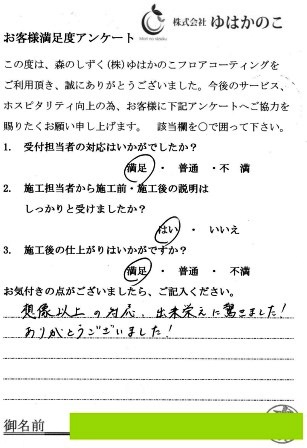 株式会社 ゆはかのこ
お客様満足度アンケート
この度は、森のしずく(株)ゆはかのこフロアコーティングを
ご利用頂き、誠にありがとうございました。今後のサービス、
ホスピタリティ向上の為、お客様に下記アンケートへご協力を
賜りたくお願い申し上げます。 該当欄を〇で囲って下さい。
1. 受付担当者の対応はいかがでしたか？
満足 ・ 普通 ・不 満
2. 施工担当者から施工前・施工後の説明は
しっかりと受けましたか？
はい ・ いいえ
3. 施工後の仕上がりはいかがですか？
満足 ・ 普通 ・ 不満
お気付きの点がございましたら、ご記入ください。
想像以上の対応、出来栄えに驚きました!
ありがとうございました!
御名前